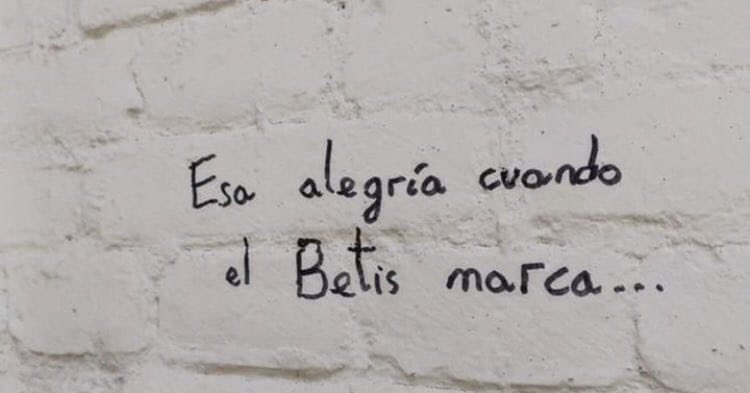 Esa alegría cuando
el Betis marca...